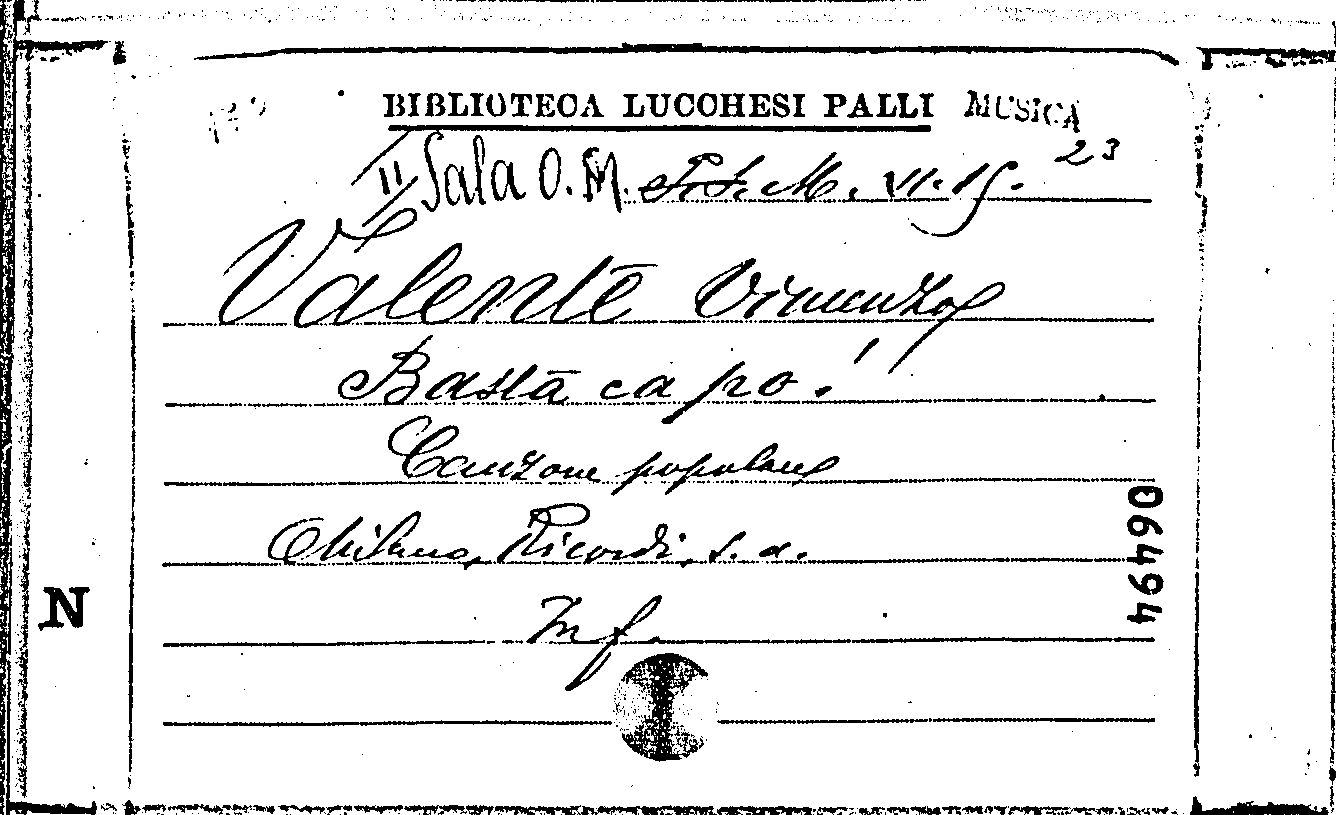 BIBLIOTECA LUCCHESI PALLI MUSICA
II Sala O. M. M. VI. 15. 23
Valente Vincenzo
Basta ca po'!
Canzone popolare
Milano, Ricordi, s. a.
In f.
06494
N